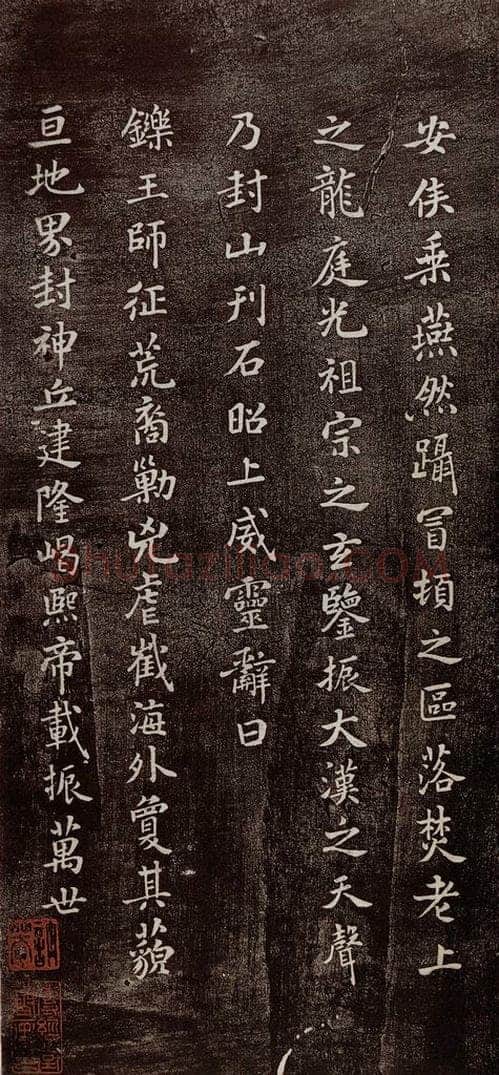 安侯乘燕然躡冒頓之區落焚老上
之龍庭光祖宗之玄鑒振大漢之天聲
乃封山刊石昭上威靈辭曰
鑠王師征荒裔勦兇虐截海外敻其藐
亘地界封神丘建隆嵑熙帝載振萬世
Shufazidian.COM